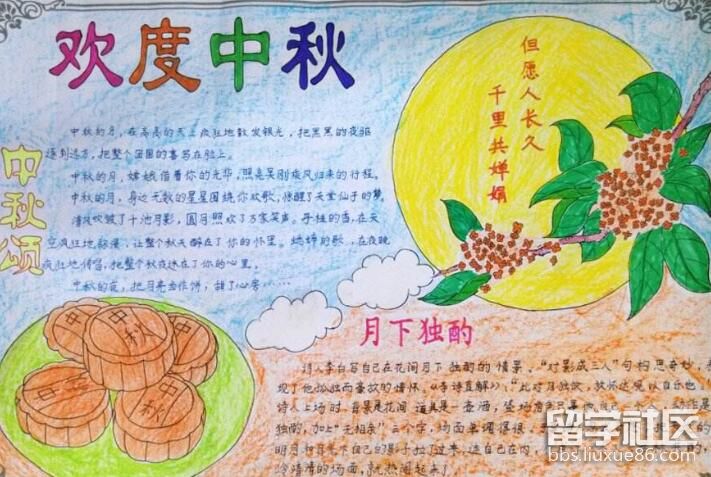 欢度中秋
但愿人长久
千里共婵娟
中秋颂
中秋的月，在高高的天上疯狂地散发银光，把黑黑的夜驱
逐到远方，把整个团圆的喜写在脸上。
中秋的月，嫦娥借着你的光华，照亮吴刚疾风归来的行程。
中秋的月，身边无数的星星围绕你欢歌，惊醒了天堂仙子的梦。
清风吹皱了十池月影，圆月照欢了万家笑声。丹桂的香，在天
空疯狂地弥漫，让整个秋天醉在了你的怀里。蟋蟀的歌，在夜晚
疯狂地传唱，把整个秋夜迷在了你的心里。
中秋的夜，把月亮当作饼，甜了心房……
中秋
月下独酌
诗人李白写自己在花间月下独酌的情景。“对影成三人”句构思奇妙，表
现了他孤独而豪放的情怀。《李诗直解》：“此对月独饮，放怀达观以自乐也。”
诗人上场时，背景是花间，道具是一壶酒，登场角色
独酌，加上“无相亲”三个字，场面单调得很。
明月和月光下自己的影子拉了过来，连自己在内，
冷清清的场面，就热闹起来了。
留学社区
bbs.liuxue86.com